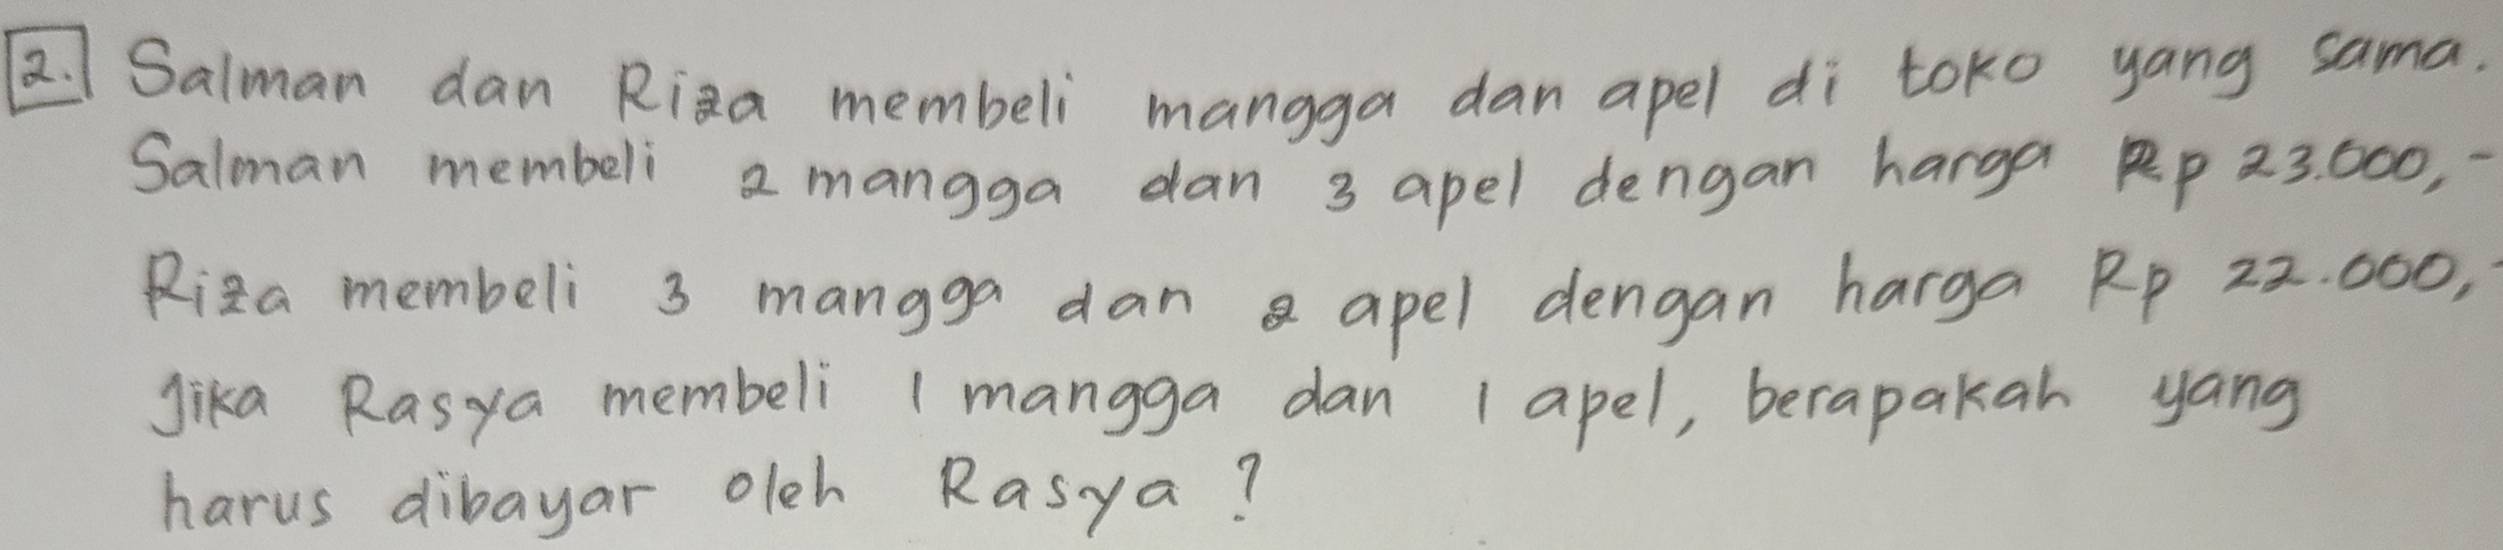 2. Salman dan Riza membeli mangga dan apel di toko yang sama.
Salman membeli 2 mangga dan 3 apel dengan harga Rp 23.000,-
Riza membeli 3 mangga dan 2 apel dengan harga Rp 22.000,-
Jika Rasya membeli 1 mangga dan 1 apel, berapakah yang
harus dibayar oleh Rasya?